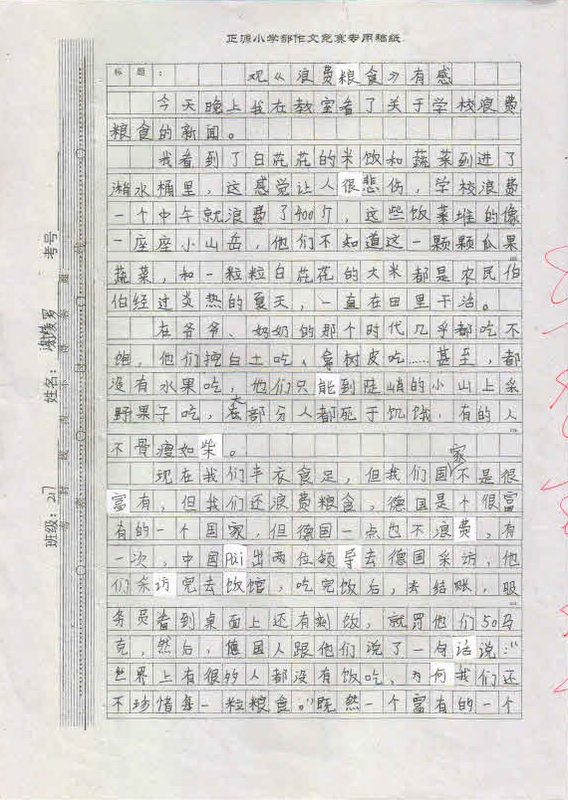 正源小学部作文竞赛专用稿纸
标题：观《浪费粮食》有感
今天晚上我在教室看了关于学校浪费
粮食的新闻。
我看到了白花花的米饭和蔬菜到进了
潲水桶里，这感觉让人很悲伤，学校浪费
一个中午就浪费了400斤，这些饭菜堆的像
一座座小山岳，他们不知道这一颗颗瓜果
蔬菜，和一粒粒白花花的大米都是农民伯
伯经过炎热的夏天，一直在田里干活。
在爷爷、奶奶的那个时代几乎都吃不
饱，他们挖白土吃、拿树皮吃……甚至，都
没有水果吃，他们只能到陡峭的小山上采
野果子吃，大部分人都死于饥饿，有的人
不骨瘦如柴。
现在我们丰衣食足，但我们国家不是很
富有，但我们还浪费粮食，德国是个很富
有的一个国家，但德国一点也不浪费，有
一次，中国pài出两位领导去德国采访，他
们采访完去饭馆，吃完饭后，去结账，服
务员看到桌面上还有剩饭，就罚他们50马
克，然后，德国人跟他们说了一句话说：“
世界上有很多人都没有饭吃，为何我们还
不珍惜每一粒粮食。”既然一个富有的一个
班级：217
姓名：
考号